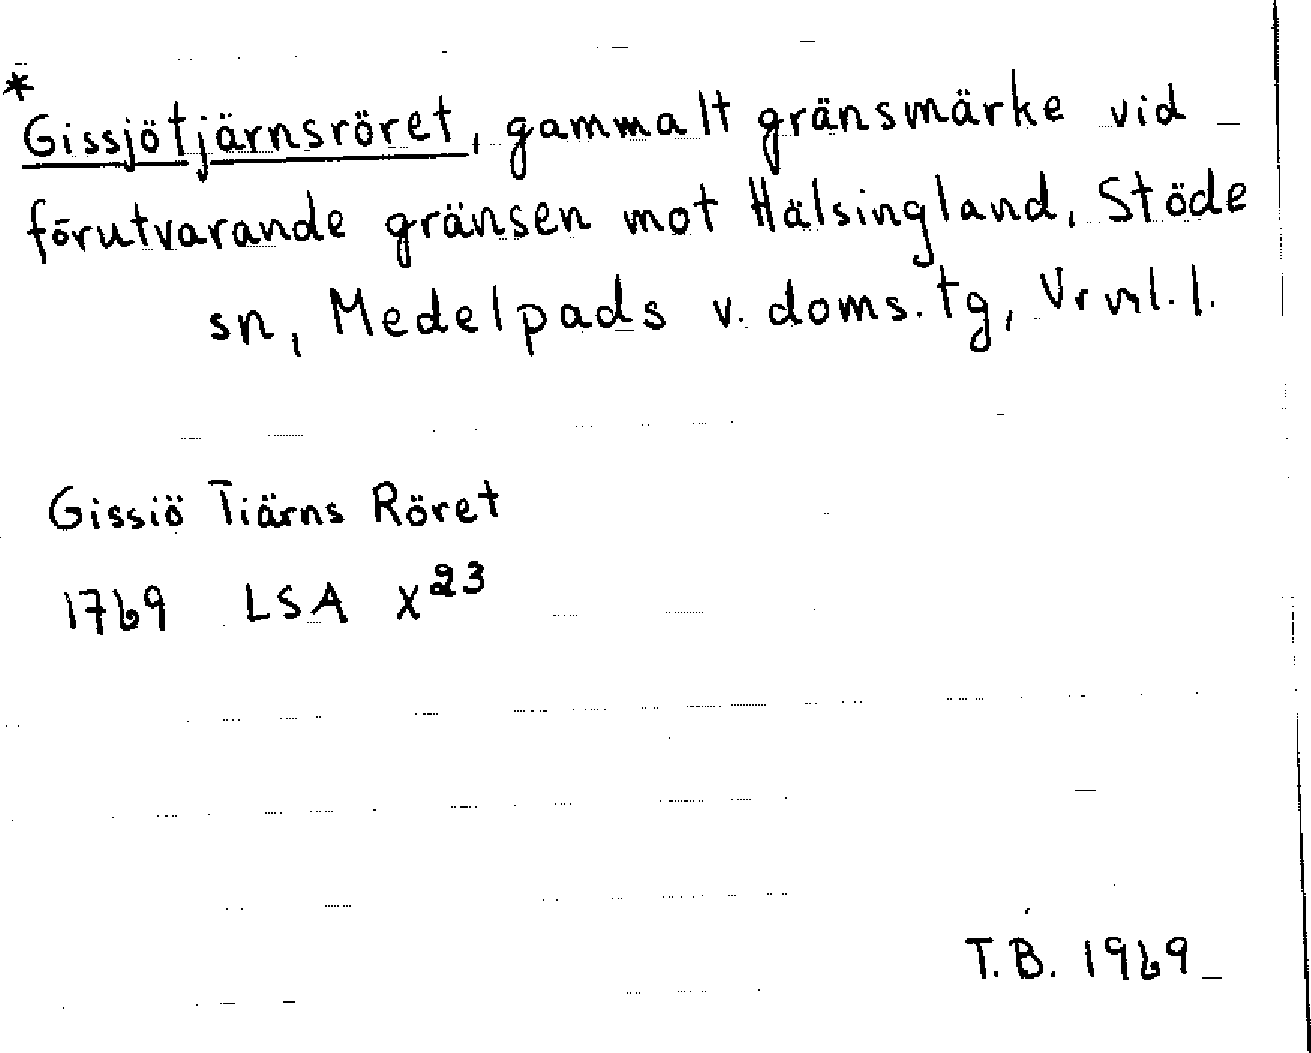 *
Gissjötjärnsröret, gammalt gränsmärke vid
förutvarande gränsen mot Hälsingland, Stöde
sn, Medelpads v. doms. tg, Vrnl. l.
Gissiö Tiärns Röret
1769 LSA X²³
T.B. 1969